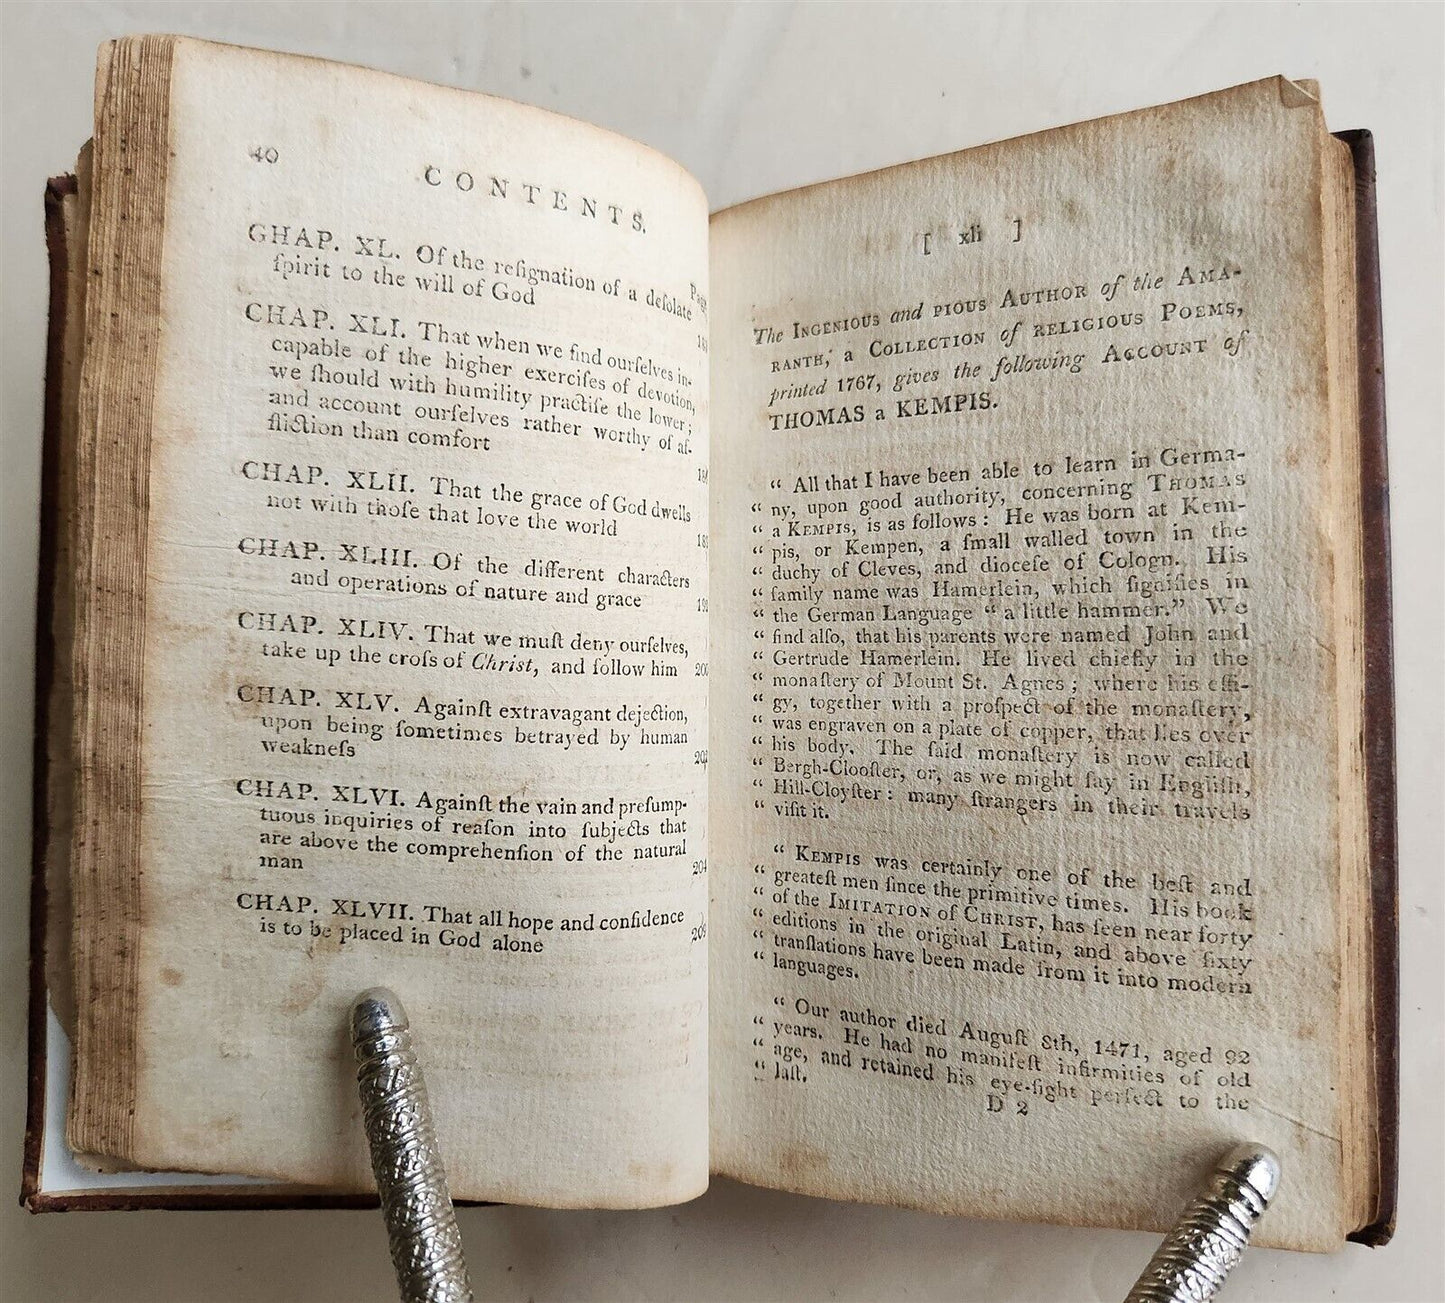 40
CONTENTS.
Page
GHAP. XL. Of the reſignation of a deſolate
ſpirit to the will of God
CHAP. XLI. That when we find ourſelves in-
capable of the higher exerciſes of devotion,
we ſhould with humility practiſe the lower;
and account ourſelves rather worthy of af-
fliction than comfort
CHAP. XLII. That the grace of God dwells
not with thoſe that love the world
CHAP. XLIII. Of the different characters
and operations of nature and grace
CHAP. XLIV. That we muſt deny ourſelves,
take up the croſs of Chriſt, and follow him 200
CHAP. XLV. Againſt extravagant dejection,
upon being ſometimes betrayed by human
weakneſs
CHAP. XLVI. Againſt the vain and preſump-
tuous inquiries of reaſon into ſubjects that
are above the comprehenſion of the natural
man 204
CHAP. XLVII. That all hope and confidence
is to be placed in God alone
[ xli ]
The INGENIOUS and PIOUS AUTHOR of the AMA-
RANTH, a COLLECTION of RELIGIOUS POEMS,
printed 1767, gives the following ACCOUNT of
THOMAS a KEMPIS.
“ All that I have been able to learn in Germa-
“ ny, upon good authority, concerning THOMAS
“ a KEMPIS, is as follows: He was born at Kem-
“ pis, or Kempen, a ſmall walled town in the
“ duchy of Cleves, and dioceſe of Cologn. His
“ family name was Hamerlein, which ſignifies in
“ the German Language “ a little hammer.” We
“ find alſo, that his parents were named John and
“ Gertrude Hamerlein. He lived chiefly in the
“ monaſtery of Mount St. Agnes; where his effi-
“ gy, together with a proſpect of the monaſtery,
“ was engraven on a plate of copper, that lies over
“ his body. The ſaid monaſtery is now called
“ Bergh-Clooſter, or, as we might ſay in Engliſh,
“ Hill-Cloyſter: many ſtrangers in their travels
“ viſit it.
“ KEMPIS was certainly one of the beſt and
“ greateſt men ſince the primitive times. His book
“ of the IMITATION of CHRIST, has ſeen near forty
“ editions in the original Latin, and above ſixty
“ tranſlations have been made from it into modern
“ languages.
“ Our author died Auguſt 8th, 1471, aged 92
“ years. He had no manifeſt infirmities of old
“ age, and retained his eye-ſight perfect to the
“ laſt.
D 2